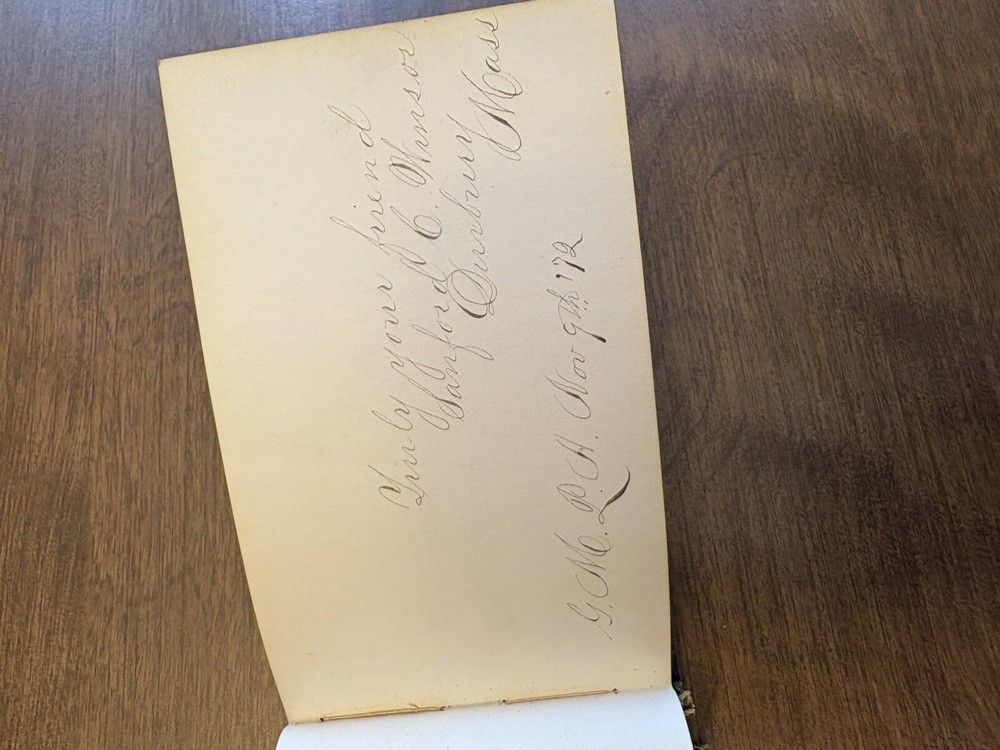 Truly your friend
Sanford C. Winsor
Duxbury Mass
G. M. P. H. Nov 9th '72